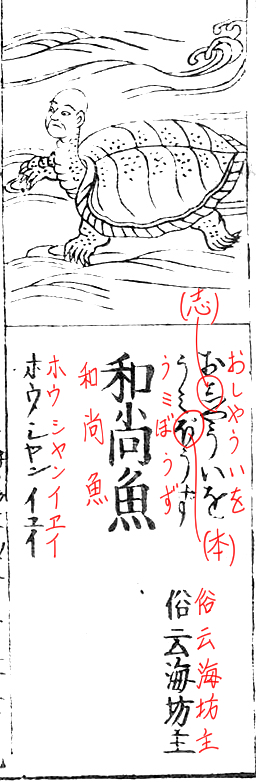 (志)
おしやういを
おしやういを
うミぼうず
うミぼうず
(本)
和尚魚
和尚魚
ホウシヤンイヱイ
ホウシヤンイヱイ
俗云海坊主
俗云海坊主